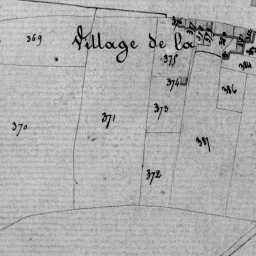 369
Village de la
375
374
384
386
373
370
371
387
372